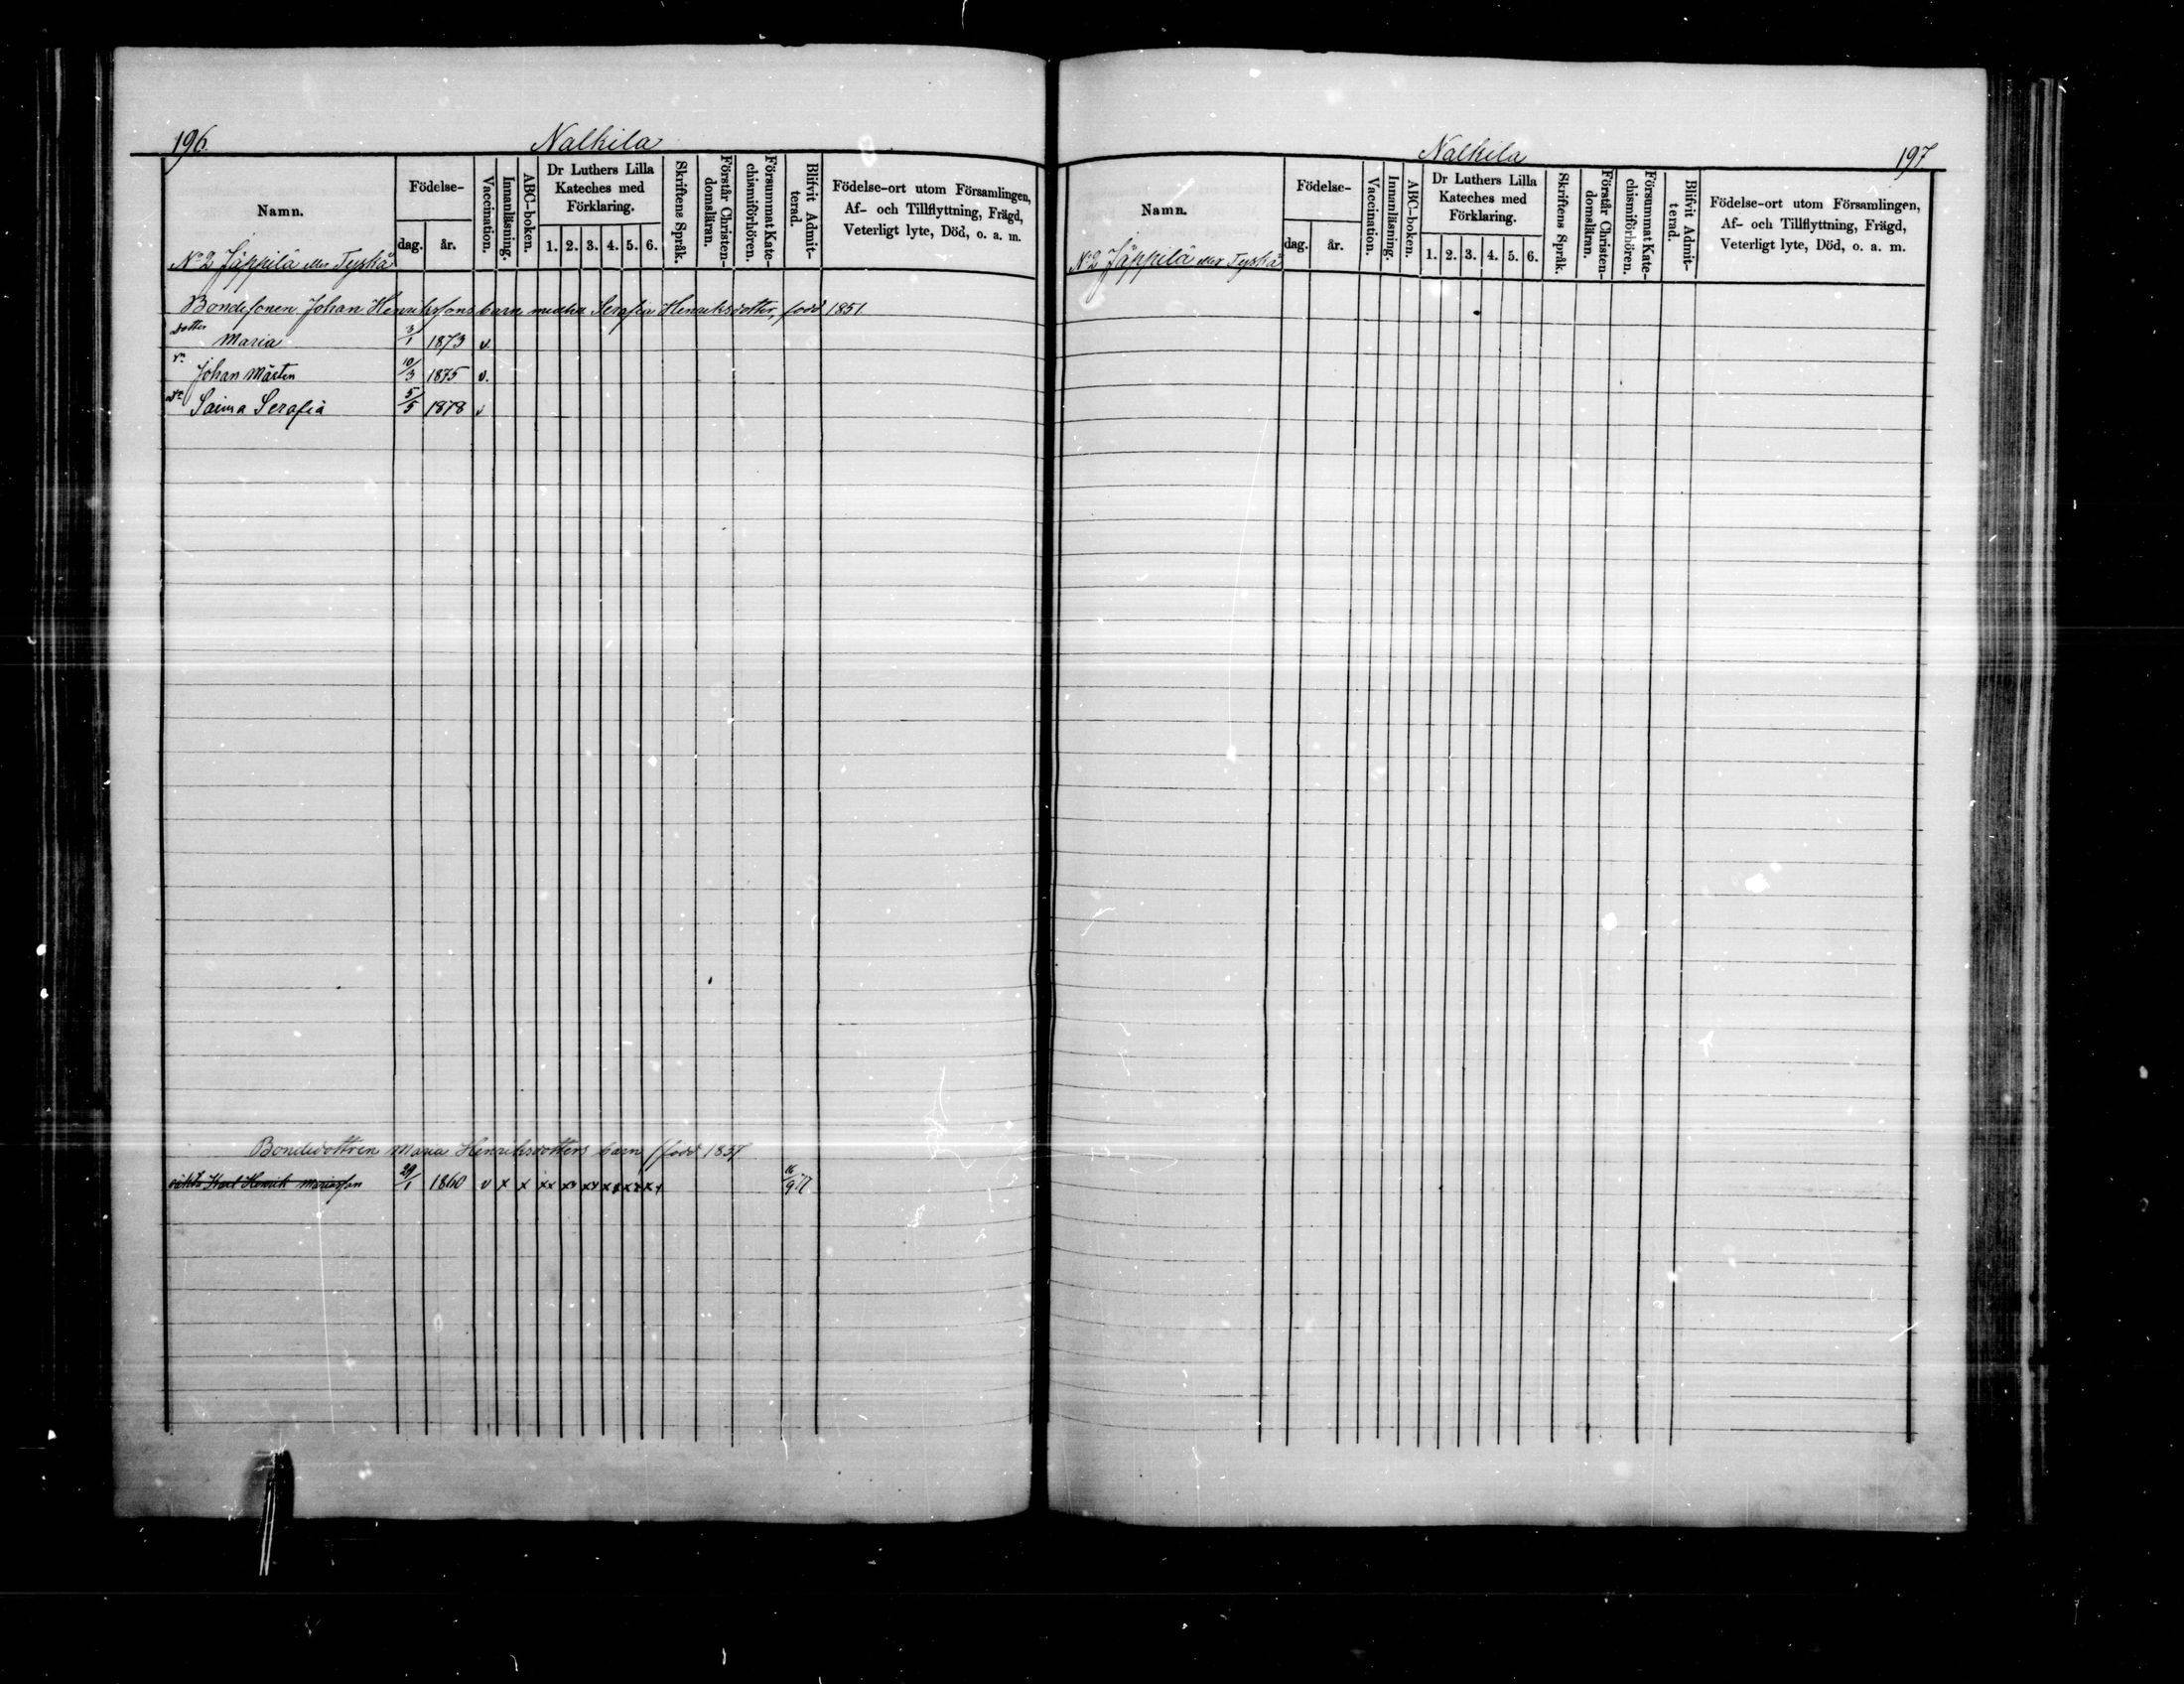 196.
Nalkila
Namn.
Födelse-
dag.
år.
Vaccination.
Innanläsning.
ABC-boken.
Dr Luthers Lilla
Kateches med
Förklaring.
1. 2. 3. 4. 5. 6.
Skriftens Språk.
Förstår Christen-
domsläran.
Försummat Kate-
chismiförhören.
Blifvit Admit-
terad.
Födelse-ort utom Församlingen,
Af- och Tillflyttning, Frägd,
Veterligt lyte, Död, o. a. m.
No 2 Jäppilä eller Tyskä
Bondesonen Johan Henrikssons barn med Serafia Henriksdotter, född 1851
dotter Maria 3/1 1873 v.
Johan Mårten 10/3 1875 v.
Saima Serafia 5/5 1878 v
Bondedottren Maria Henriksdotters barn (född 1837
Karl Henrik Mariasson 29/1 1860 v x x xx xx xx xx xx xx 16/9 77
Nalkila
197
Namn.
Födelse-
dag.
år.
Vaccination.
Innanläsning.
ABC-boken.
Dr Luthers Lilla
Kateches med
Förklaring.
1. 2. 3. 4. 5. 6.
Skriftens Språk.
Förstår Christen-
domsläran.
Försummat Kate-
chismiförhören.
Blifvit Admit-
terad.
Födelse-ort utom Församlingen,
Af- och Tillflyttning, Frägd,
Veterligt lyte, Död, o. a. m.
No 2 Jäppilä eller Tyskä